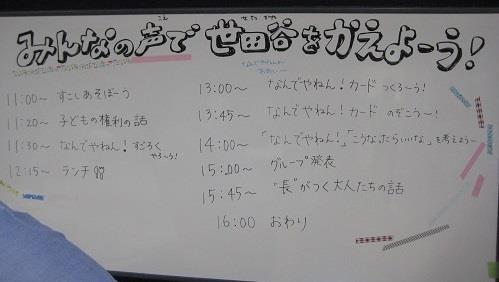 こえ
せたがや
みんなの声で 世田谷をかえよーう!
11:00~ すこしあそぼーう
11:20~ 子どもの権利の話
11:30~ なんでやねん!すごろく
やろ~う!
12:15~ ランチ
13:00~ なんでやねん!カード つくろ~う!
13:45~ なんでやねん!カード のぞこう~!
14:00~ 「なんでやねん!」「こうなったらいいな」を考えよう~
15:00~ グループ発表
15:45~ "長"がつく大人たちの話
16:00 おわり